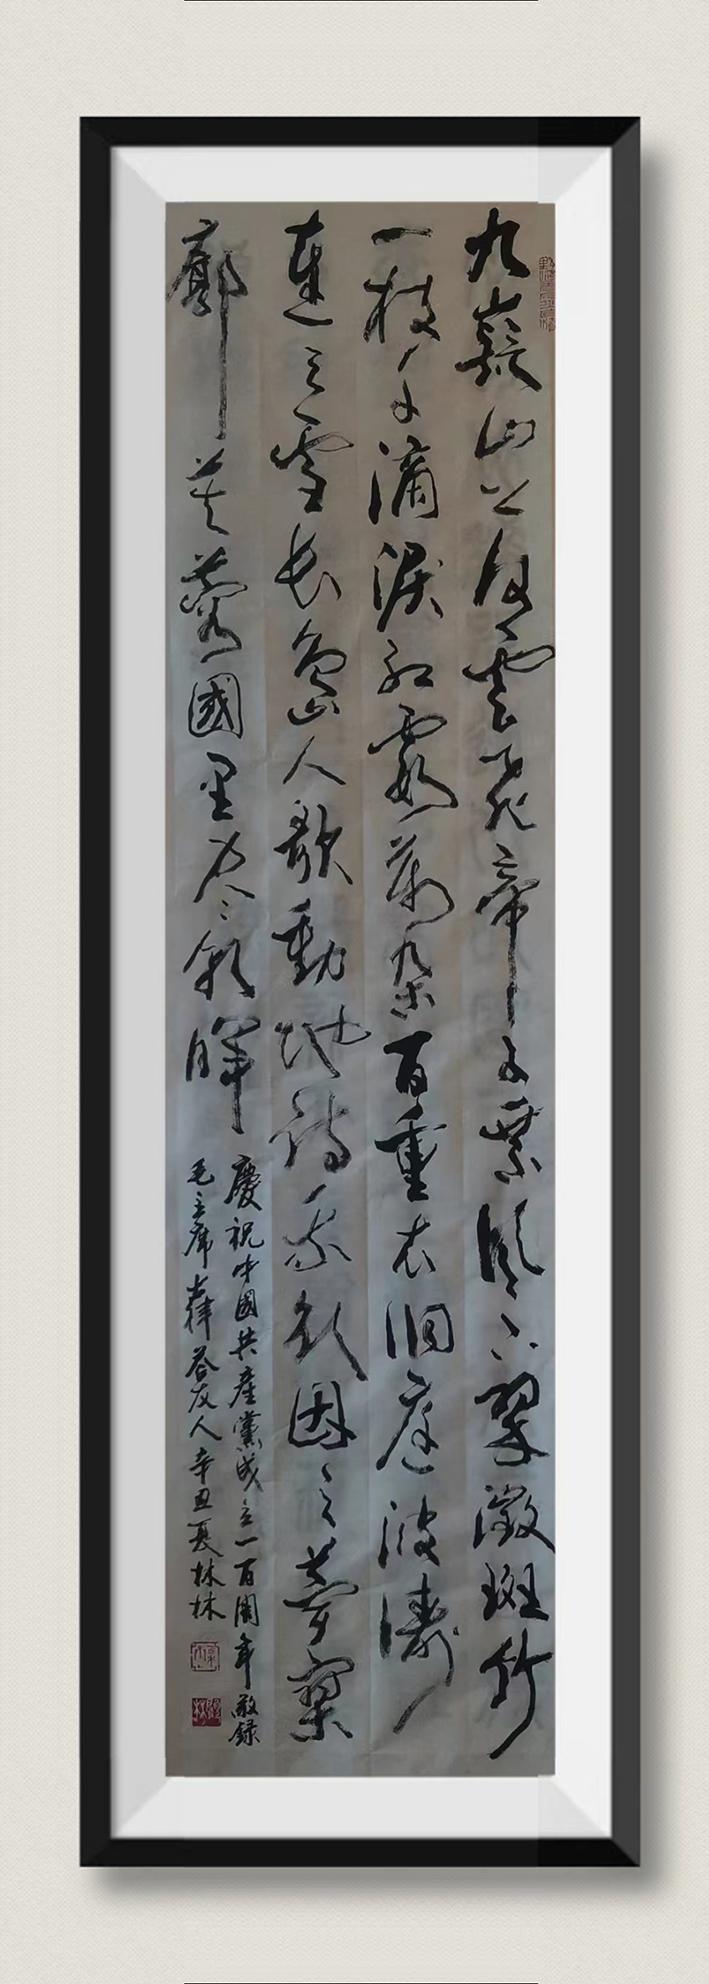 九嶷山上白雲飛帝子乘風下翠微斑竹
一枝千滴淚紅霞萬朵百重衣洞庭波濤
連天雪長島人歌動地詩我欲因之夢寥
廓芙蓉國里盡朝暉
慶祝中國共產黨成立一百周年敬録
毛主席七律答友人辛丑夏林林